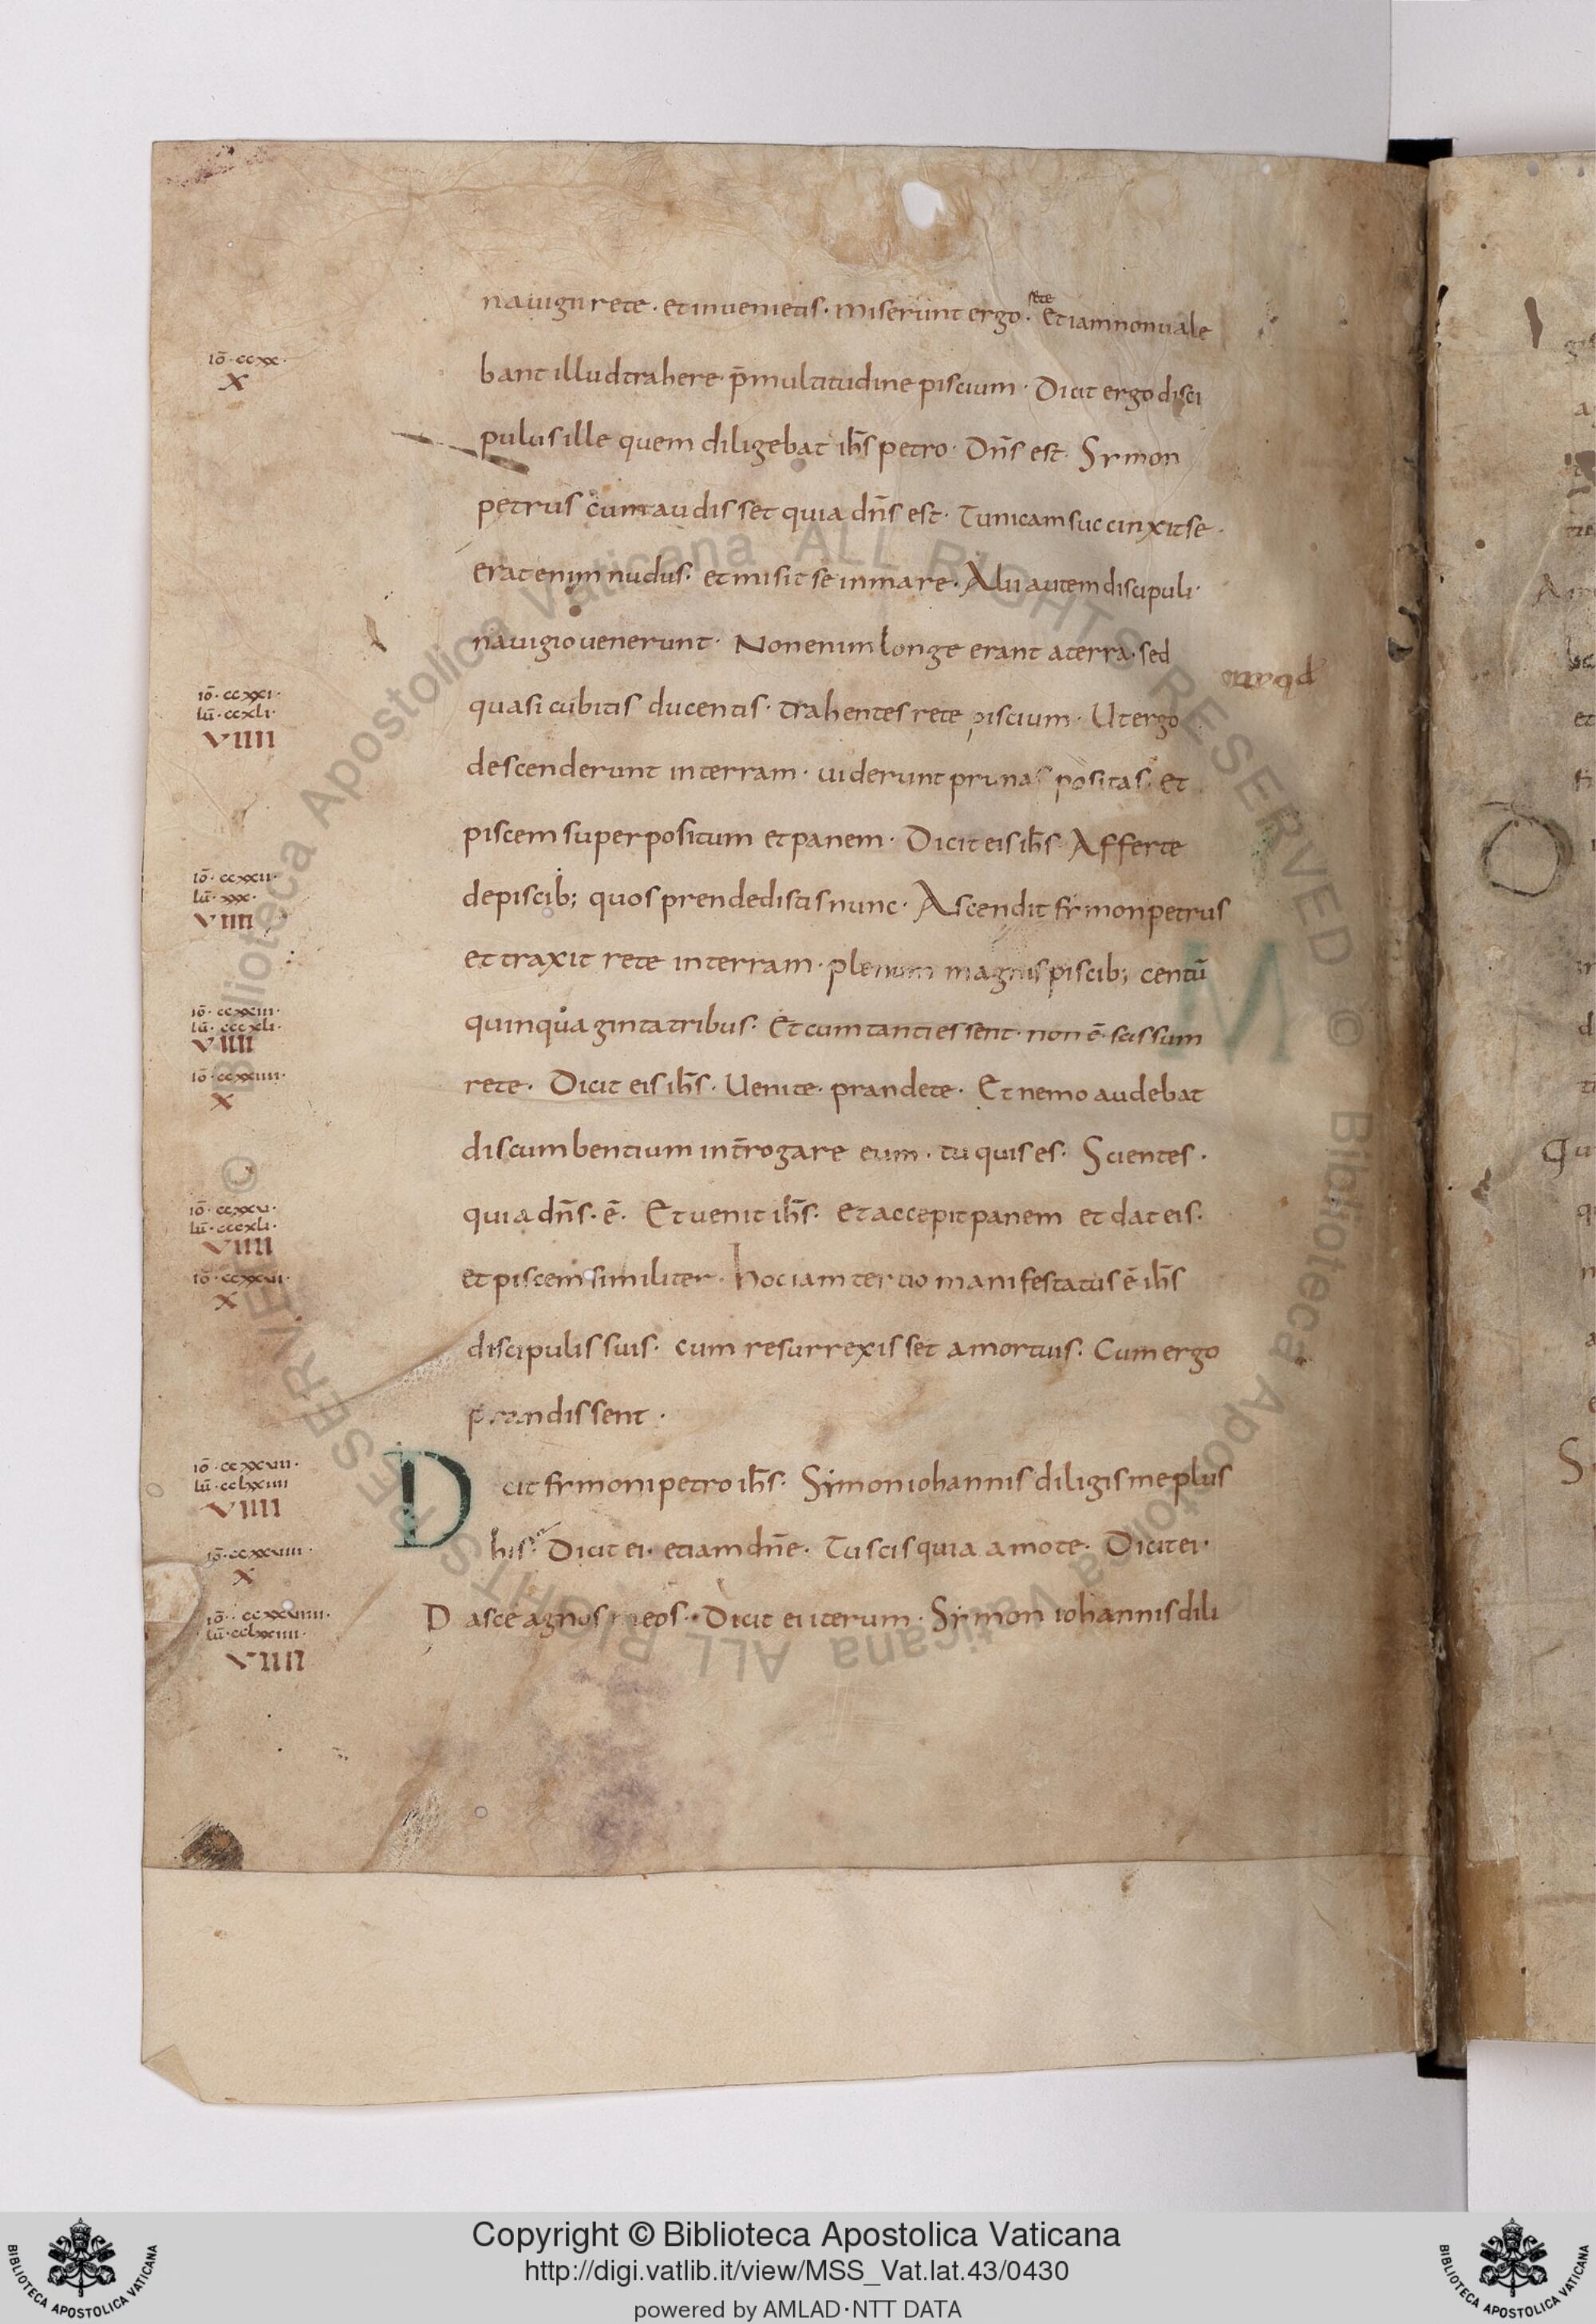 nauigii rete · et inuenietis · miserunt ergo · rete Et iam non uale
iō · ccxx ·
X
bant illud trahere · p̄ multitudine piscium · Dicit ergo disci
pulus ille quem diligebat ih̄s petro · Dn̄s est · Symon
petrus cum audisset quia dn̄s est · Tunicam succinxit se ·
erat enim nudus · et misit se in mare · Alii autem discipuli ·
nauigio uenerunt · Non enim longe erant a terra · sed
iō · ccxxi ·
lū · ccxli ·
VIIII
quasi cubitis ducentis · trahentes rete piscium · Ut ergo
descenderunt in terram · uiderunt prunas positas · et
piscem superpositum et panem · Dicit eis ih̄s · Afferte
iō · ccxxii ·
lū · xxx ·
VIIII
de piscib; quos prendedistis nunc · Ascendit symon petrus
et traxit rete in terram · plenum magnis piscib; centū
iō · ccxxiii ·
lū · cccxli ·
VIIII
quinquaginta tribus · Et cum tanti essent · non ē · scissum
iō · ccxxiiii ·
X
rete · Dicit eis ih̄s · Uenite · prandete · Et nemo audebat
discumbentium int̄rogare eum · tu quis es · Scientes ·
iō · ccxxv ·
lū · cccxli ·
VIIII
quia dn̄s · ē · Et uenit ih̄s · et accepit panem et dat eis ·
iō · ccxxvi ·
X
et piscem similiter · hoc iam tertio manifestatus ē ih̄s
discipulis suis · cum resurrexisset a mortuis · Cum ergo
prandissent ·
iō · ccxxvii ·
lū · cclxxiiii
VIIII
Dicit symoni petro ih̄s · Symon iohannis diligis me plus
iō · ccxxviii ·
X
his · Dicit ei · etiam dn̄e · Tu scis quia amo te · Dicit ei ·
iō · ccxxviiii ·
lū · cclxxiiii ·
VIIII
Pasce agnos meos · Dicit ei iterum · Symon iohannis dili
Copyright © Biblioteca Apostolica Vaticana
http://digi.vatlib.it/view/MSS_Vat.lat.43/0430
powered by AMLAD·NTT DATA